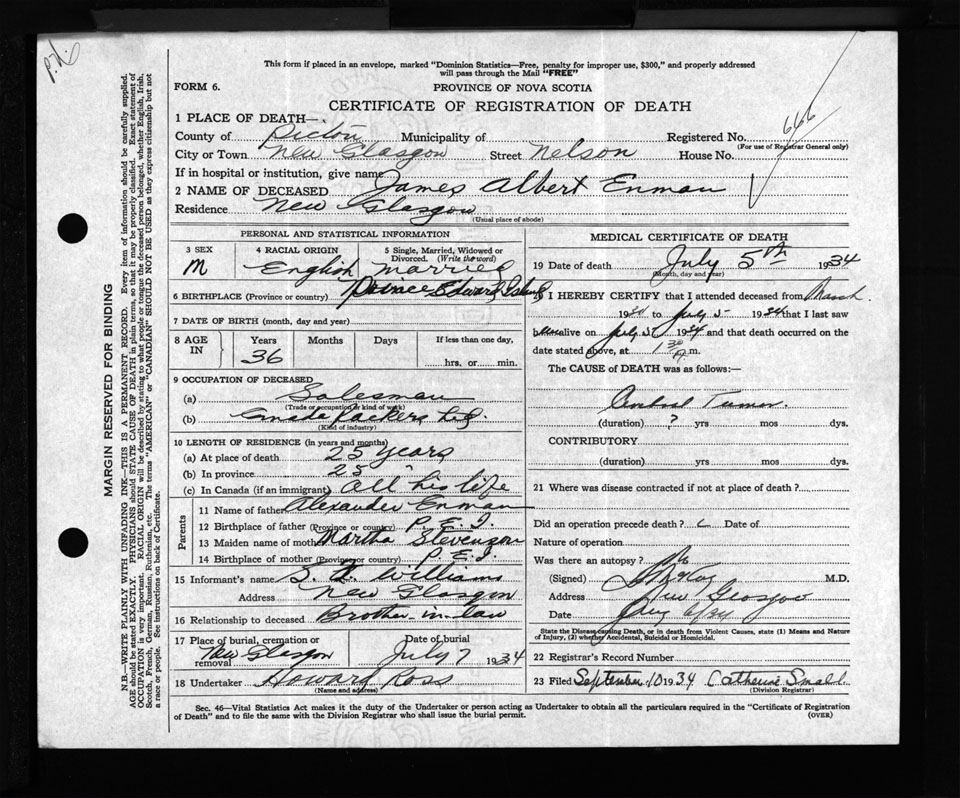 P.N.
This form if placed in an envelope, marked "Dominion Statistics—Free, penalty for improper use, $300," and properly addressed
will pass through the Mail "FREE"
FORM 6.
PROVINCE OF NOVA SCOTIA
CERTIFICATE OF REGISTRATION OF DEATH
666
1 PLACE OF DEATH—
County of Pictou Municipality of Registered No.
(For use of Registrar General only)
City or Town New Glasgow Street Nelson House No.
If in hospital or institution, give name
2 NAME OF DECEASED James Albert Enman
Residence New Glasgow
(Usual place of abode)
PERSONAL AND STATISTICAL INFORMATION
3 SEX
M
4 RACIAL ORIGIN
English
5 Single, Married, Widowed or
Divorced. (Write the word)
Married
6 BIRTHPLACE (Province or country) Prince Edward Island
7 DATE OF BIRTH (month, day and year)
8 AGE IN
Years
36
Months
Days
If less than one day,
hrs. or min.
9 OCCUPATION OF DECEASED
(a) Salesman
(Trade or occupation or kind of work)
(b) Canada Packers Ltd.
(Kind of industry)
10 LENGTH OF RESIDENCE (in years and months)
(a) At place of death 25 years
(b) In province 25 "
(c) In Canada (if an immigrant) All his life
Parents
11 Name of father Alexander Enman
12 Birthplace of father (Province or country) P.E.I.
13 Maiden name of mother Martha Stevenson
14 Birthplace of mother (Province or country) P.E.I.
15 Informant's name Williams
Address New Glasgow
16 Relationship to deceased Brother-in-law
17 Place of burial, cremation or
removal New Glasgow
Date of burial
July 7 1934
18 Undertaker Howard Ross
(Name and address)
MEDICAL CERTIFICATE OF DEATH
19 Date of death July 5th 1934
(Month, day and year)
20 I HEREBY CERTIFY that I attended deceased from March
to July 5 1934 that I last saw
alive on July 5 1934 and that death occurred on
date stated above, at 1 30 A m.
The CAUSE of DEATH was as follows:—
Tumor.
(duration) ? yrs mos dys.
CONTRIBUTORY
(duration) yrs mos dys.
21 Where was disease contracted if not at place of death?
Did an operation precede death? Date of
Nature of operation
Was there an autopsy? No
(Signed) M.D.
Address New Glasgow
Date
State the Disease causing Death, or in death from Violent Causes, state (1) Means and Nature
of Injury, (2) whether Accidental, Suicidal or Homicidal.
22 Registrar's Record Number
23 Filed September 10 1934 Catherine Small
(Division Registrar)
Sec. 46—Vital Statistics Act makes it the duty of the Undertaker or person acting as Undertaker to obtain all the particulars required in the "Certificate of Registration
of Death" and to file the same with the Division Registrar who shall issue the burial permit.
(OVER)
MARGIN RESERVED FOR BINDING
N.B.—WRITE PLAINLY WITH UNFADING INK—THIS IS A PERMANENT RECORD. Every item of information should be carefully supplied.
AGE should be stated EXACTLY. PHYSICIANS should STATE CAUSE OF DEATH in plain terms, so that it may be properly classified. Exact statement of
OCCUPATION is very important. RACIAL ORIGIN will be described by stating to what people or tongue the deceased person belonged, whether English, Irish,
Scotch, French, German, Russian, Ruthenian, etc. The terms "AMERICAN" or "CANADIAN" SHOULD NOT BE USED as they express citizenship but not
a race or people. See instructions on back of Certificate.